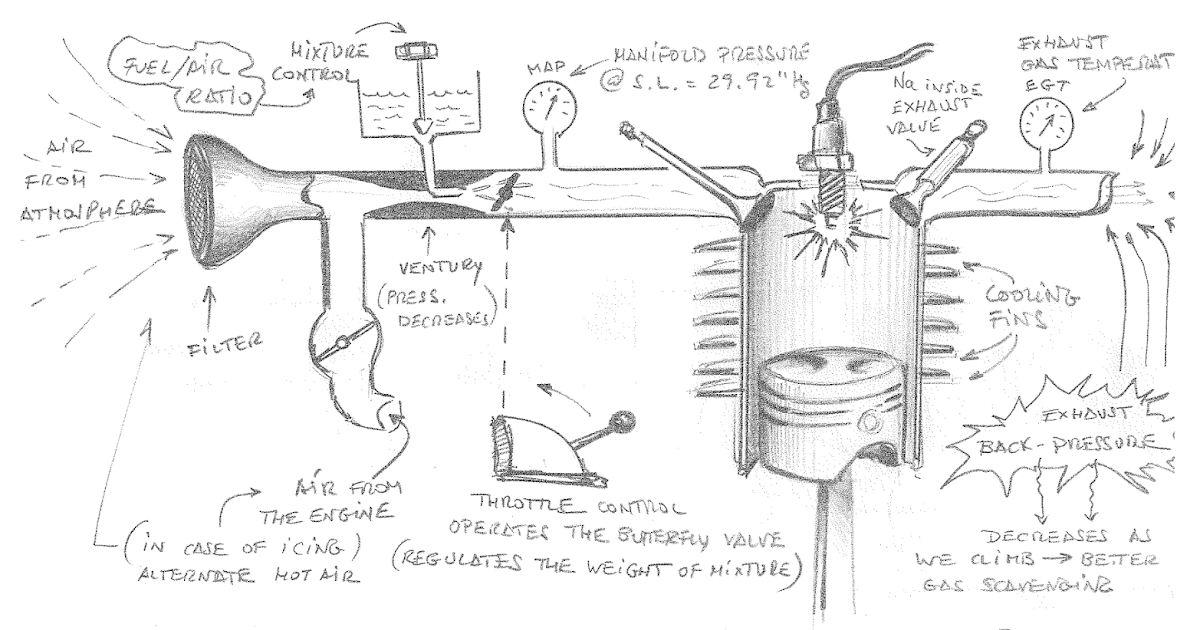 FUEL/AIR
RATIO
MIXTURE
CONTROL
MAP
MANIFOLD PRESSURE
@ S.L. = 29.92"Hg
Na INSIDE
EXHAUST
VALVE
EXHAUST
GAS TEMPERAT
EGT
AIR
FROM
ATMOSPHERE
FILTER
VENTURY
(PRESS.
DECREASES)
COOLING
FINS
EXHAUST
BACK-PRESSURE
DECREASES AS
WE CLIMB → BETTER
GAS SCAVENGING
AIR FROM
THE ENGINE
(IN CASE OF ICING)
ALTERNATE HOT AIR
THROTTLE CONTROL
OPERATES THE BUTERFLY VALVE
(REGULATES THE WEIGHT OF MIXTURE)